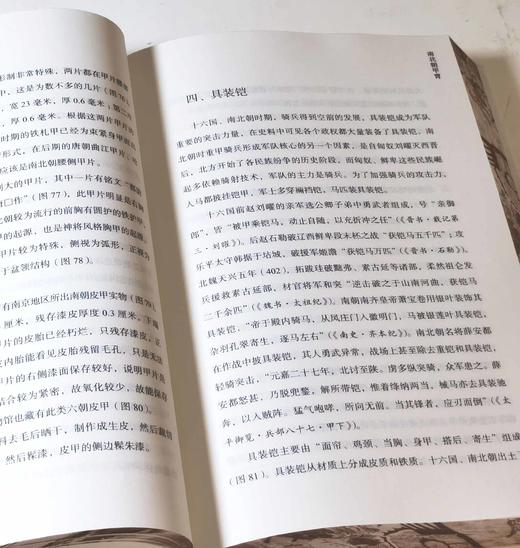 形制非常特殊,两片都在甲片腰部
中,这是为数不多的几片(图76)。
,宽23毫米,厚0.6毫米;第二片
,厚0.6毫米。根据这两片甲片的
时期的铁札甲已经为束紧身甲而
形式,在后期的唐朝曲江甲片、
应该是南北朝腰侧甲片。
大的甲片,其中一片有铭文“都
用口作”(图77),此甲片明显是右
北朝较为流行的前胸有圆护的铁护
甲的起源,也是神将风格胸甲的起
甲片较为特殊,侧视为弧形,正
于盆领结构(图78)。
有南京地区所出南朝皮甲实物(图79)
厘米,残存漆皮厚度0.3厘米。下
片的皮胎已经朽烂,只残存漆皮,正
皮内胎能看见皮胎残留毛孔,只是无
甲片的右侧漆面保存较好,说明甲片
结合较为紧密,故氧化较少,故能保存
物馆也藏有此类六朝皮甲(图80)。
料去毛后晒干,制作成生皮,然后裁切
,然后髹漆,皮甲的侧边髹朱漆。
南北朝甲胄
四、具装铠
十六国、南北朝时期,骑兵得到空前的发展,具装铠成为军队
重要的突击力量,在史料中可见各个政权都大量装备了具装铠。南
北朝时重甲骑兵形成军队核心的另一个因素,是自匈奴刘曜灭西晋
后,北方开始了各民族纷争的历史阶段,而匈奴、鲜卑这些民族崛
起多依赖骑射技术,军队的主力是骑兵。为了加强骑兵的攻击力,
人马都披挂铠甲,军士多穿裲裆铠,马匹装具装铠。
十六国前赵刘曜的亲军选公卿子弟中勇武者组成,号“亲御
郎”,皆“被甲乘铠马,动止自随,以充折冲之任”(《晋书·载记第
三·刘曜》)。后赵石勒破辽西鲜卑段末杯之战“获铠马五千匹”;攻
乐平太守韩据于坫城,破援军姬澹“获铠马万匹”(《晋书·石勒》)。
北魏天兴五年(402),拓跋珪破黜弗、素古延等诸部,柔然祖仑发
兵援救素古延部,材官将军和突“逆击破之于山南河曲,获铠马
二千余匹”(《魏书·太祖纪》)。南朝南齐皇帝萧宝卷用银叶装饰其
具装铠,“帝于殿内骑马,从凤庄门入徽明门,马被银莲叶具装铠,
杂羽孔翠寄生,逐马左右”(《南史·齐本纪》)。南北朝名将薛安都
在作战中披具装铠,其人勇武异常,战场上甚至除去重铠和具装铠
轻骑突击,“元嘉二十七年,北讨至陕。虏多纵突骑,众军患之。薛
安都怒甚,乃脱兜鍪,解所带铠,惟着绛纳两当,绒马亦去具装,
奔,以入贼阵。猛气咆哮,所向无前。当其锋者,应刃而倒”(《太
平御览·兵部八十七·甲下》)。
具装铠主要由“面帘、鸡颈、当胸、身甲、搭后、寄生”组成
(图81)。具装铠从材质上分成皮质和铁质。十六国、南北朝出土了